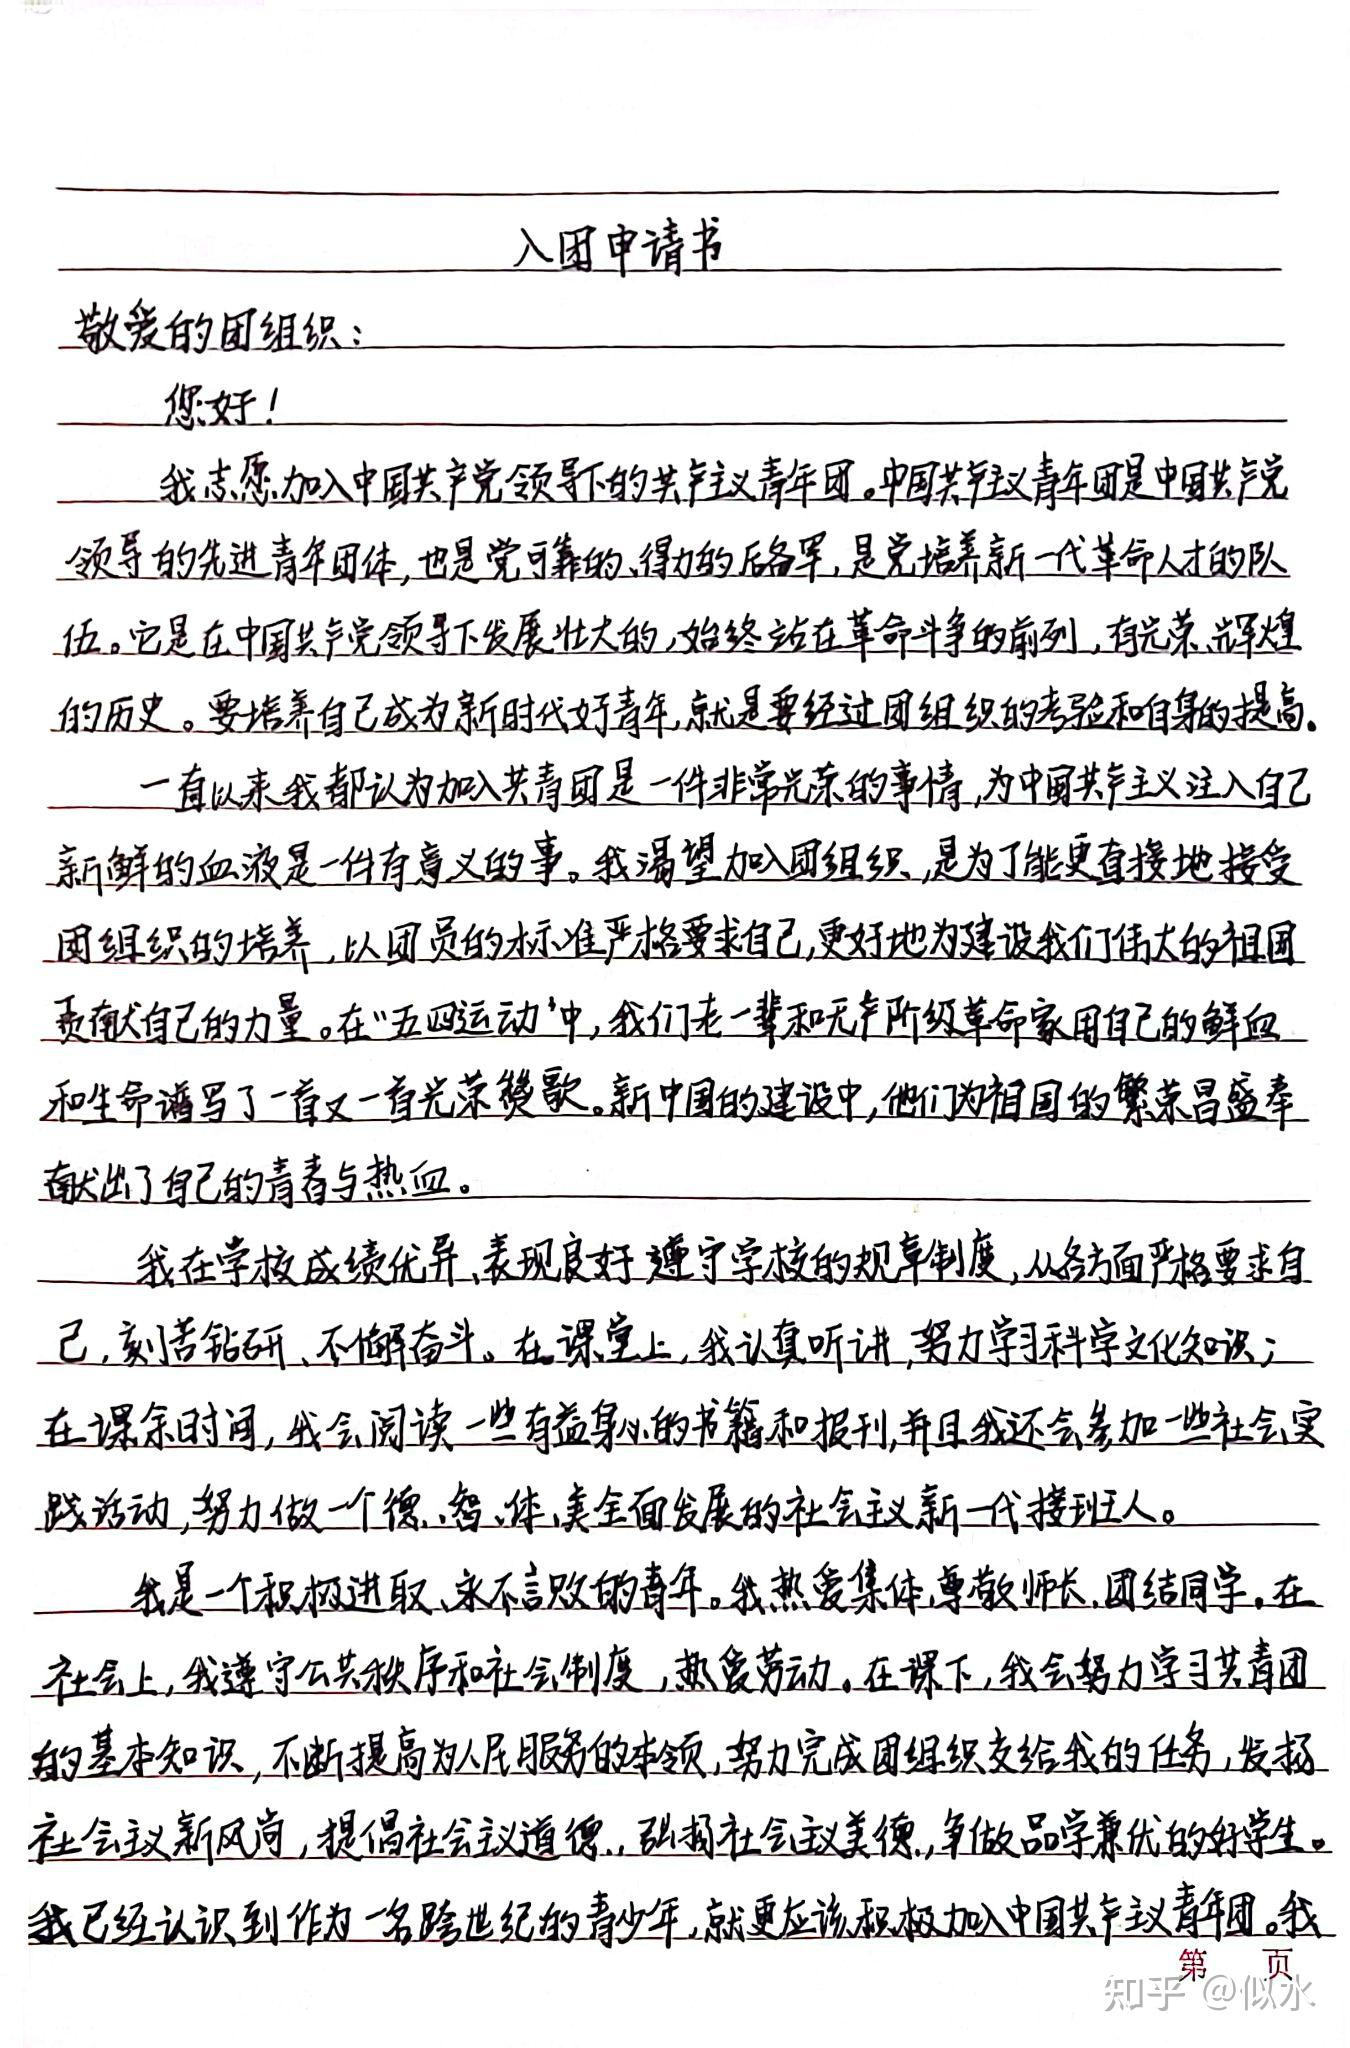 入团申请书
敬爱的团组织：
您好！
我志愿加入中国共产党领导下的共产主义青年团。中国共产主义青年团是中国共产党
领导的先进青年团体，也是党可靠的、得力的后备军，是党培养新一代革命人才的队
伍。它是在中国共产党领导下发展壮大的，始终站在革命斗争的前列，有光荣、辉煌
的历史。要培养自己成为新时代好青年，就是要经过团组织的考验和自身的提高。
一直以来我都认为加入共青团是一件非常光荣的事情，为中国共产主义注入自己
新鲜的血液是一件有意义的事。我渴望加入团组织，是为了能更直接地接受
团组织的培养，以团员的标准严格要求自己，更好地为建设我们伟大的祖国
贡献自己的力量。在“五四运动”中，我们老一辈和无产阶级革命家用自己的鲜血
和生命谱写了一首又一首光荣赞歌。新中国的建设中，他们为祖国的繁荣昌盛奉
献出了自己的青春与热血。
我在学校成绩优异、表现良好，遵守学校的规章制度，从各方面严格要求自
己，刻苦钻研、不懈奋斗。在课堂上，我认真听讲，努力学习科学文化知识；
在课余时间，我会阅读一些有益身心的书籍和报刊，并且我还会参加一些社会实
践活动，努力做一个德、智、体、美全面发展的社会主义新一代接班人。
我是一个积极进取、永不言败的青年。我热爱集体，尊敬师长，团结同学。在
社会上，我遵守公共秩序和社会制度，热爱劳动。在课下，我会努力学习共青团
的基本知识，不断提高为人民服务的本领，努力完成团组织交给我的任务，发扬
社会主义新风尚，提倡社会主义道德，弘扬社会主义美德，争做品学兼优的好学生。
我已经认识到作为一名跨世纪的青少年，就更应该积极加入中国共产主义青年团。我
第 页
知乎 @似水